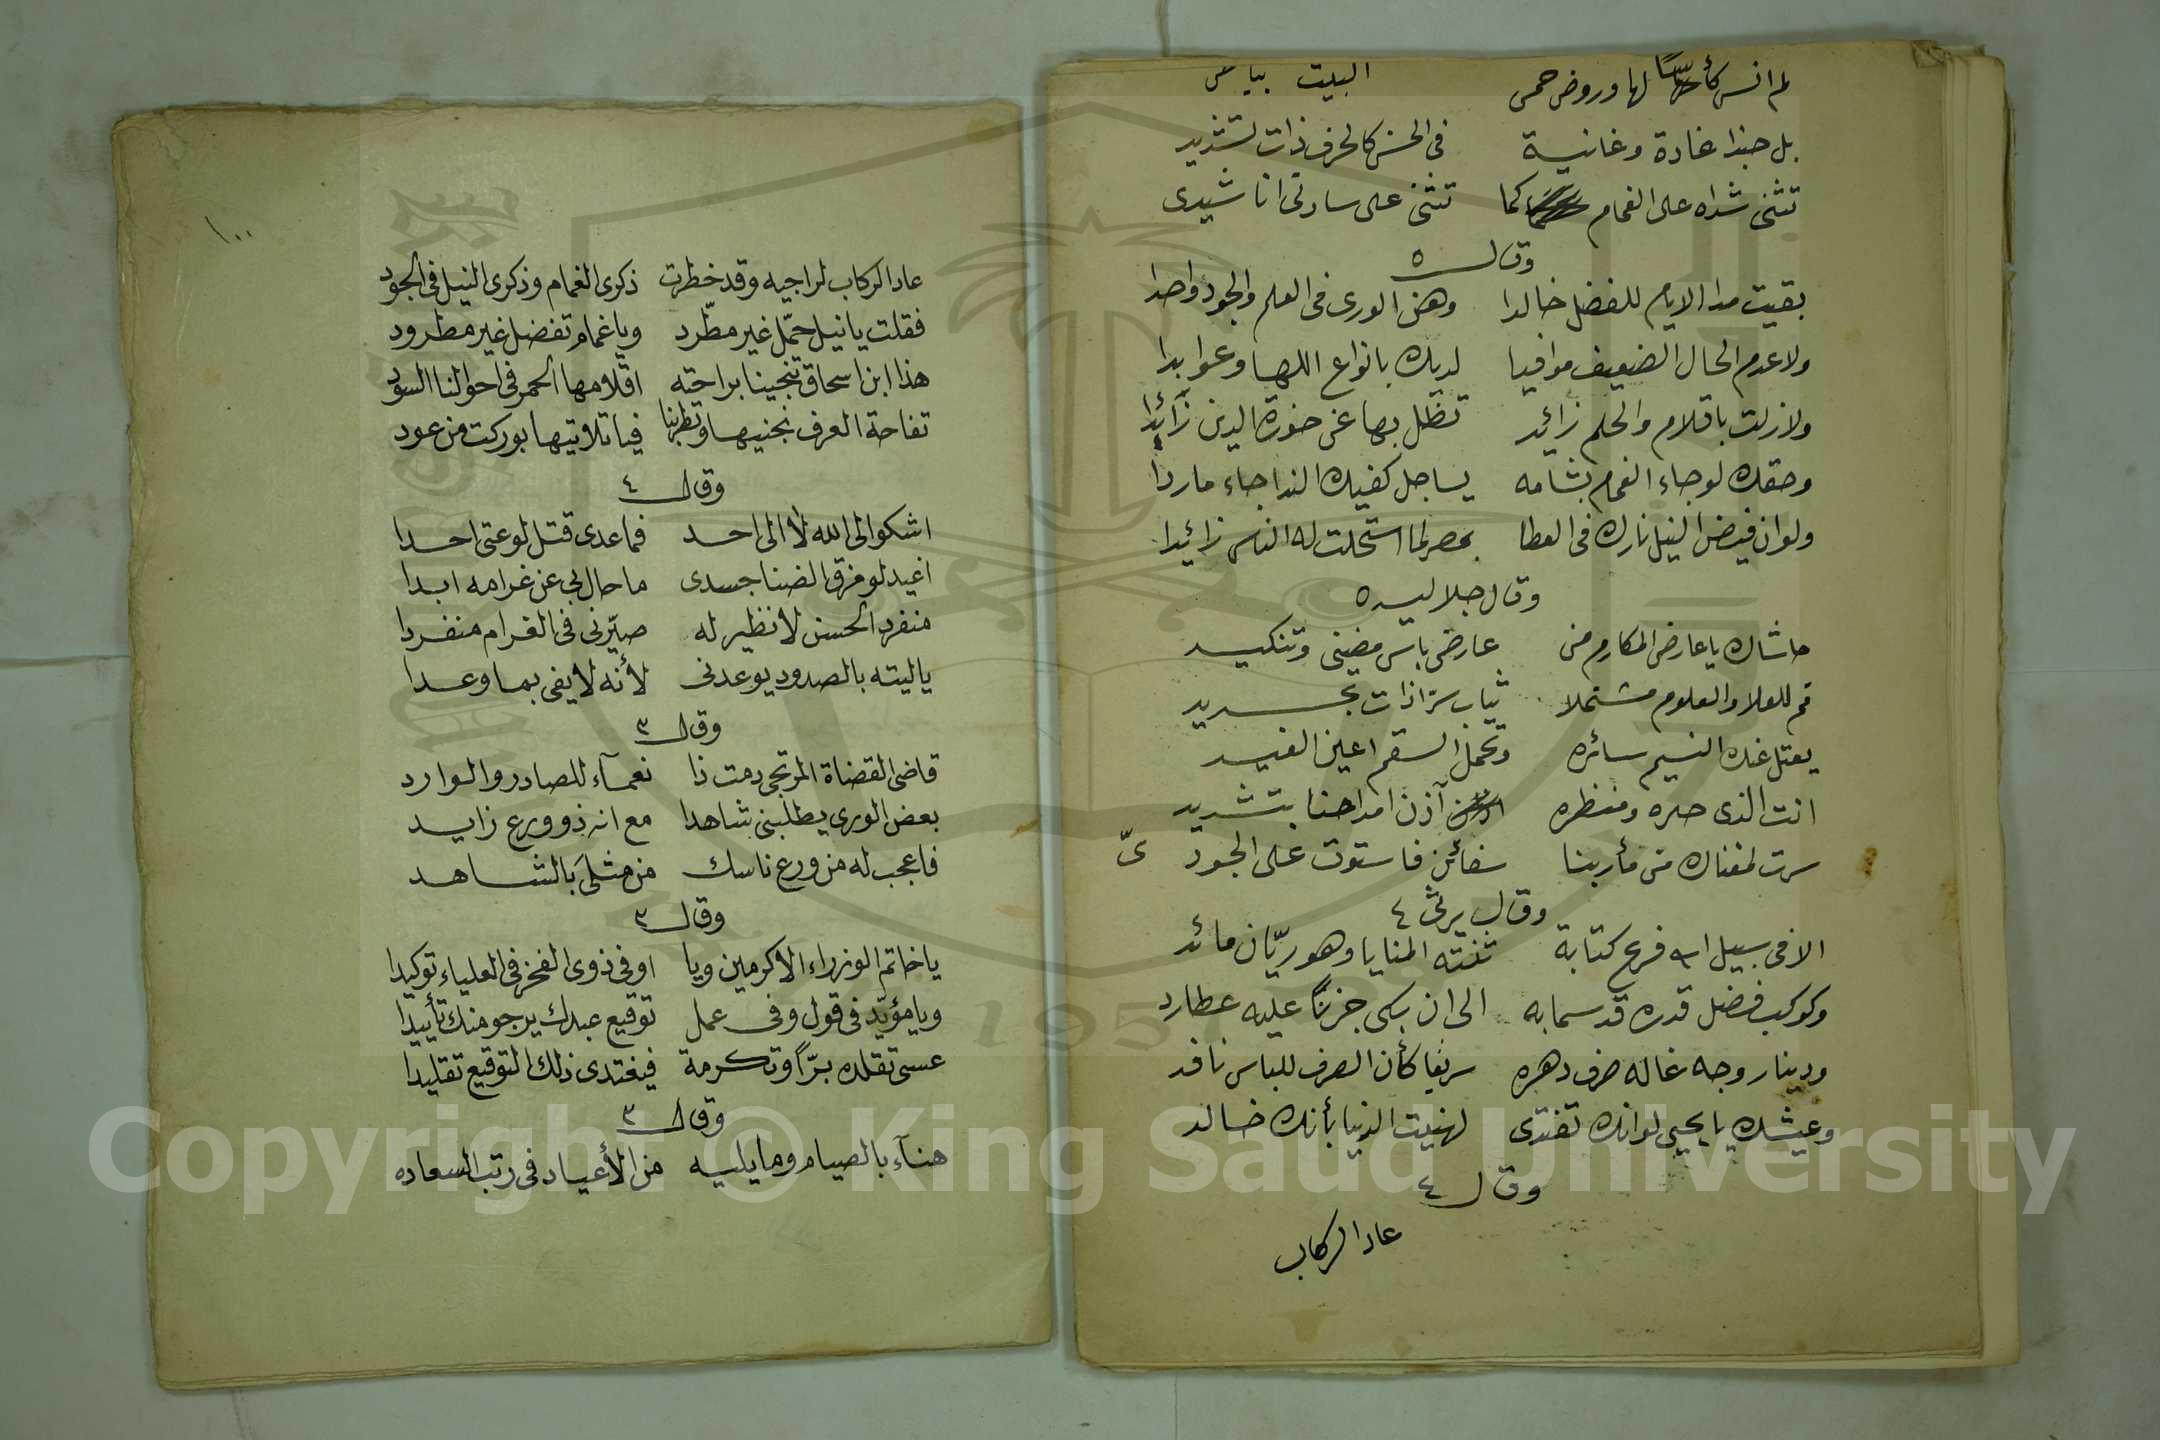 لم انس كأسا لها وروض حمى البيت بياض
بل حبذا غادة وغانية في الحسن كالحرف ذات تشديد
تثنى شداه على الغمام كما تثنى على سادتى اناشيدى
وقال ٥
بقيت مدا الايام للفضل خالدا وهذى الورى فى العلم والجود واحدا
ولا عدم الحال الضعيف موافيا لديك بانواع اللها وعوايدا
ولا زلت باقلام والحلم زائد تظل بها عن حوزة الدين زآئدا
وحقك لو جاء الغمام بشامه يساجل كفيك الندا جاء ماردا
ولو ان فيض النيل نارك فى العطا بمصر لما استحلت له الناس زائدا
وقال جلاليه ٥
حاشاك يا عارض المكارم من عارض باس مضنى وتنكيد
قم للعلا والعلوم مشتملا ثياب سرّا ذات تجديد
يعتل عنك النسيم سائره وتحمل السقم اعين الغيد
انت الذى حبره ومنظره آذن امداحنا بتشديد
سرت لمغناك من مأربنا سفائن فاستوت على الجودىّ
وقال يرثى ٤
الا فى سبيل الله فرع كتابة ثنته المنايا وهو ريّان مائد
وكوكب فضل قدره قد سما به الى ان بكى حزنًا عليه عطارد
ودينار وجه غاله صرف دهره سريعا كأن الصرف للباس ناقد
وعيشك يا يحيى لو انك تفتدى لهنيت الدنيا بأنك خالد
وقال ٤
عاد الركاب
١٠٠
عاد الركاب لراجيه وقد خطرت ذكرى الغمام وذكرى النيل فى الجود
فقلت يا نيل حمّل غير مطّرد ويا غمام تفضل غير مطرود
هذا ابن اسحاق تنجينا براحته اقلامها الحمر فى احوالنا السود
تفاحة العرف نجنيها وتطربنا فيا تلاتيها بوركت من عود
وقال ٤
اشكو الى الله لا الى احد فما عدى قتل لوعتى احدا
اغيد لو فرق الضنا جسدى ما حال بي عن غرامه ابدا
منفرد الحسن لا نظير له صيّرنى فى الغرام منفردا
يا ليته بالصدود يوعدنى لأنه لا يفى بما وعدا
وقال ٣
قاضى القضاة المرتجى دمت ذا نعمآء للصادر والوارد
بعض الورى يطلبنى شاهدا مع انه ذو ورع زايد
فاعجب له من ورع ناسك من مثلى بالشاهد
وقال ٣
يا خاتم الوزراء الاكرمين ويا اوفى ذوى الفخر فى العلياء توكيدا
ويا مؤيّد فى قول وفى عمل توقيع عبدك يرجو منك تأييدا
عسى تقلده برًّا وتكرمة فيغتدى ذلك التوقيع تقليدا
وقال ٣
هنآء بالصيام وما يليه من الأعياد فى رتب السعاده
Copyright © King Saud University
1957